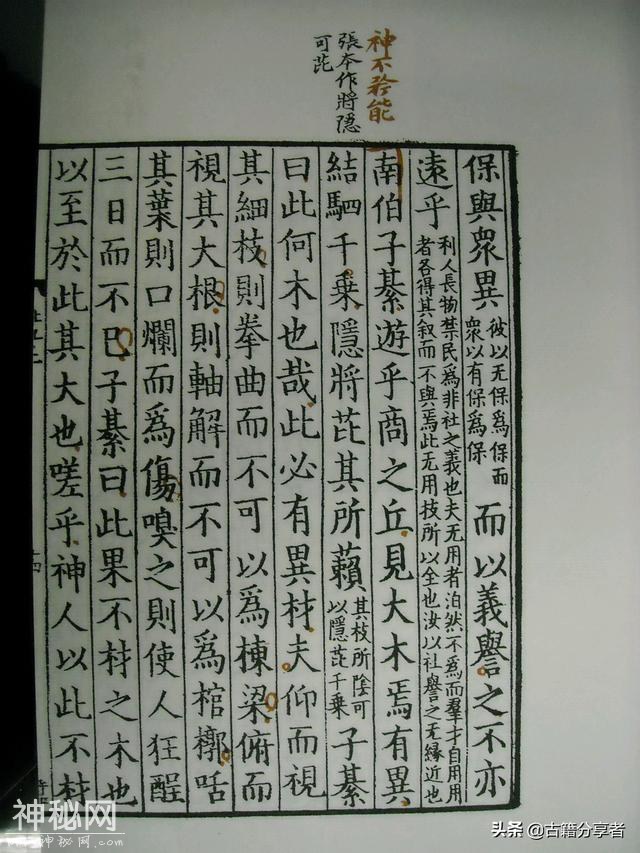 神不矜能
張本作將隱
可芘
保與眾異彼以无保爲保而眾以有保爲保而以義譽之不亦
遠乎利人長物禁民爲非社之義也夫无用者泊然不爲而羣才自用用者各得其叙而不與焉此无用技所以全也汝以社譽之无緣近也
南伯子綦遊乎商之丘見大木焉有異
結駟千乗隱將芘其所藾其枝所陰可以隱芘千乗子綦
曰此何木也哉此必有異材夫仰而視
其細枝則拳曲而不可以爲棟梁俯而
視其大根則軸解而不可以爲棺槨咶
其葉則口爛而爲傷嗅之則使人狂酲
三日而不巳子綦曰此果不材之木也
以至於此其大也嗟乎神人以此不材
神秘网
头条 @古籍分享者